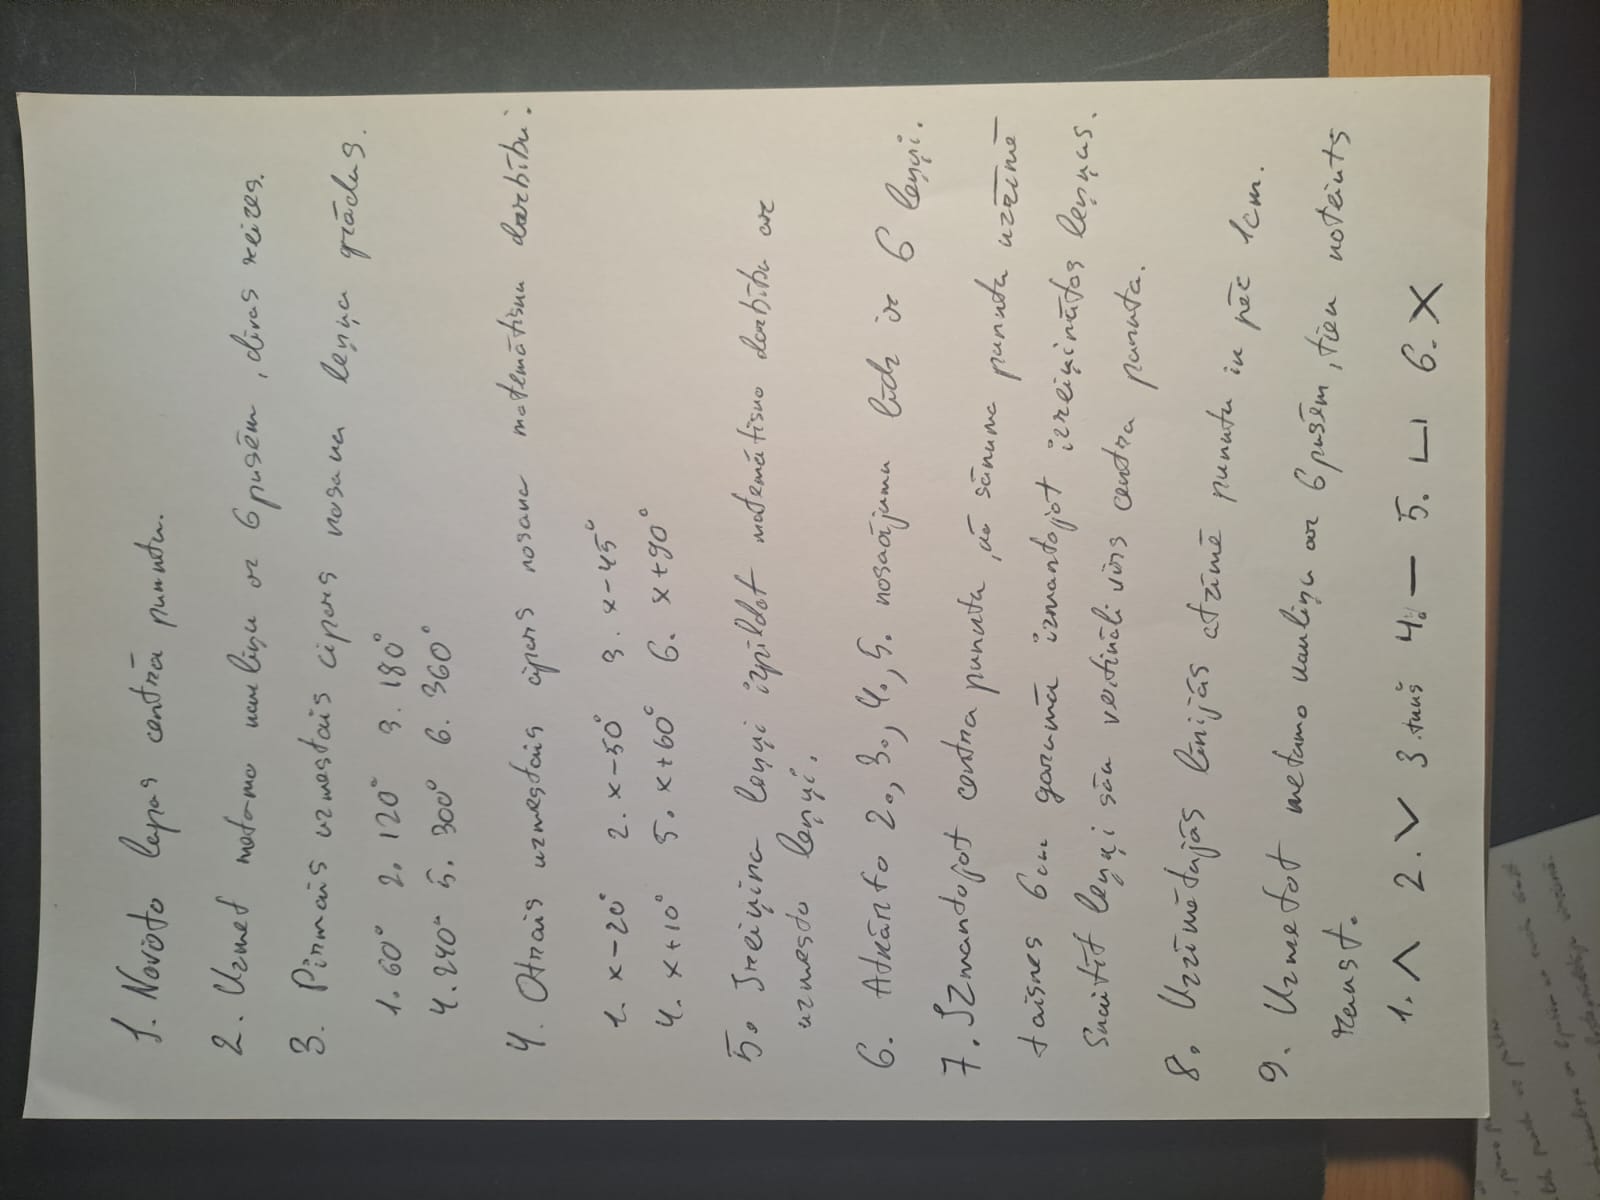 1. Novieto lapas centrā punktu.
2. Uzmet metamo kauliņu ar 6 pusēm, divas reizes.
3. Pirmais uzmestais cipars nosaka leņķa grādus.
1. 60° 2. 120° 3. 180°
4. 240° 5. 300° 6. 360°
4. Otrais uzmestais cipars nosaka matemātisku darbību.
1. x-20° 2. x-50° 3. x-45°
4. x+10° 5. x+60° 6. x+90°
5. Izreiķina leņķi izpildot matemātisko darbību ar
uzmesto leņķi.
6. Atkārto 2., 3., 4., 5. nosacījumu līdz ir 6 leņķi.
7. Izmantojot centra punktu, kā sākuma punktu uzzīmē
taisnes 6cm garumā izmantojot izreiķinātos leņķus.
Skaitīt leņķi sāk vertikāli virs centra punkta.
8. Uzzīmētajās līnijās atzīmē punktu ik pēc 1cm.
9. Uzmetot metamo kauliņu ar 6 pusēm, tiek noteikts
raksts.
1. ∧ 2. ∨ 3. tukš 4. — 5. ⊔ 6. X